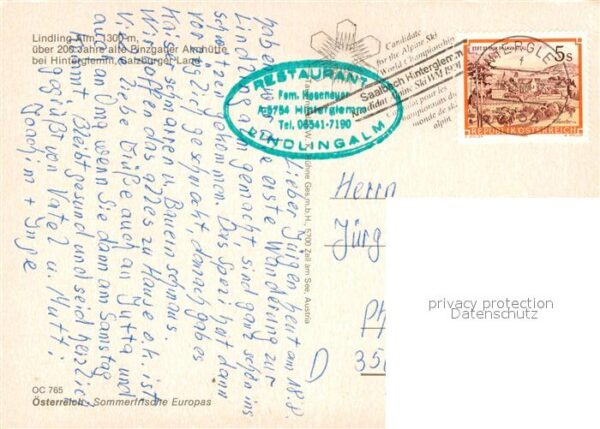 Lindling Alm, 1300 m,
über 200 Jahre alte Pinzgauer Almhütte
bei Hinterglemm, Salzburger Land
RESTAURANT
Fam. Hasenauer
A-5754 Hinterglemm
Tel. 06541-7190
LINDLINGALM
Candidate
for the Alpine Ski
World Championship
Saalbach Hinterglemm
Kandidat
Ski WM
Candidat pour les
championnats du
monde de ski
alpin
5 S
REPUBLIK ÖSTERREICH
Lieber Jürgen, heut am 18.8.
haben wir eine erste Wanderung zur
Lindlingalm gemacht sind ganz schön ins
schwitzen gekommen. Das Speci hat dann
vorzüglich geschmeckt, danach gabs
Käseschnaps u. Bauernschmaus.
Wir hoffen das alles zu Hause o.k. ist
Viele liebe Grüße auch an Jutta und
auch an Oma wenn sie dann am Samstag
kommt. Bleibt gesund und seid herzlich
gegrüßt von Vatel u. Mutti
Joachim + Inge
Herrn
Jürg
Ph
D 35
Ges.m.b.H., 5700 Zell am See, Austria
privacy protection
Datenschutz
OC 765
Österreich - Sommerfrische Europas